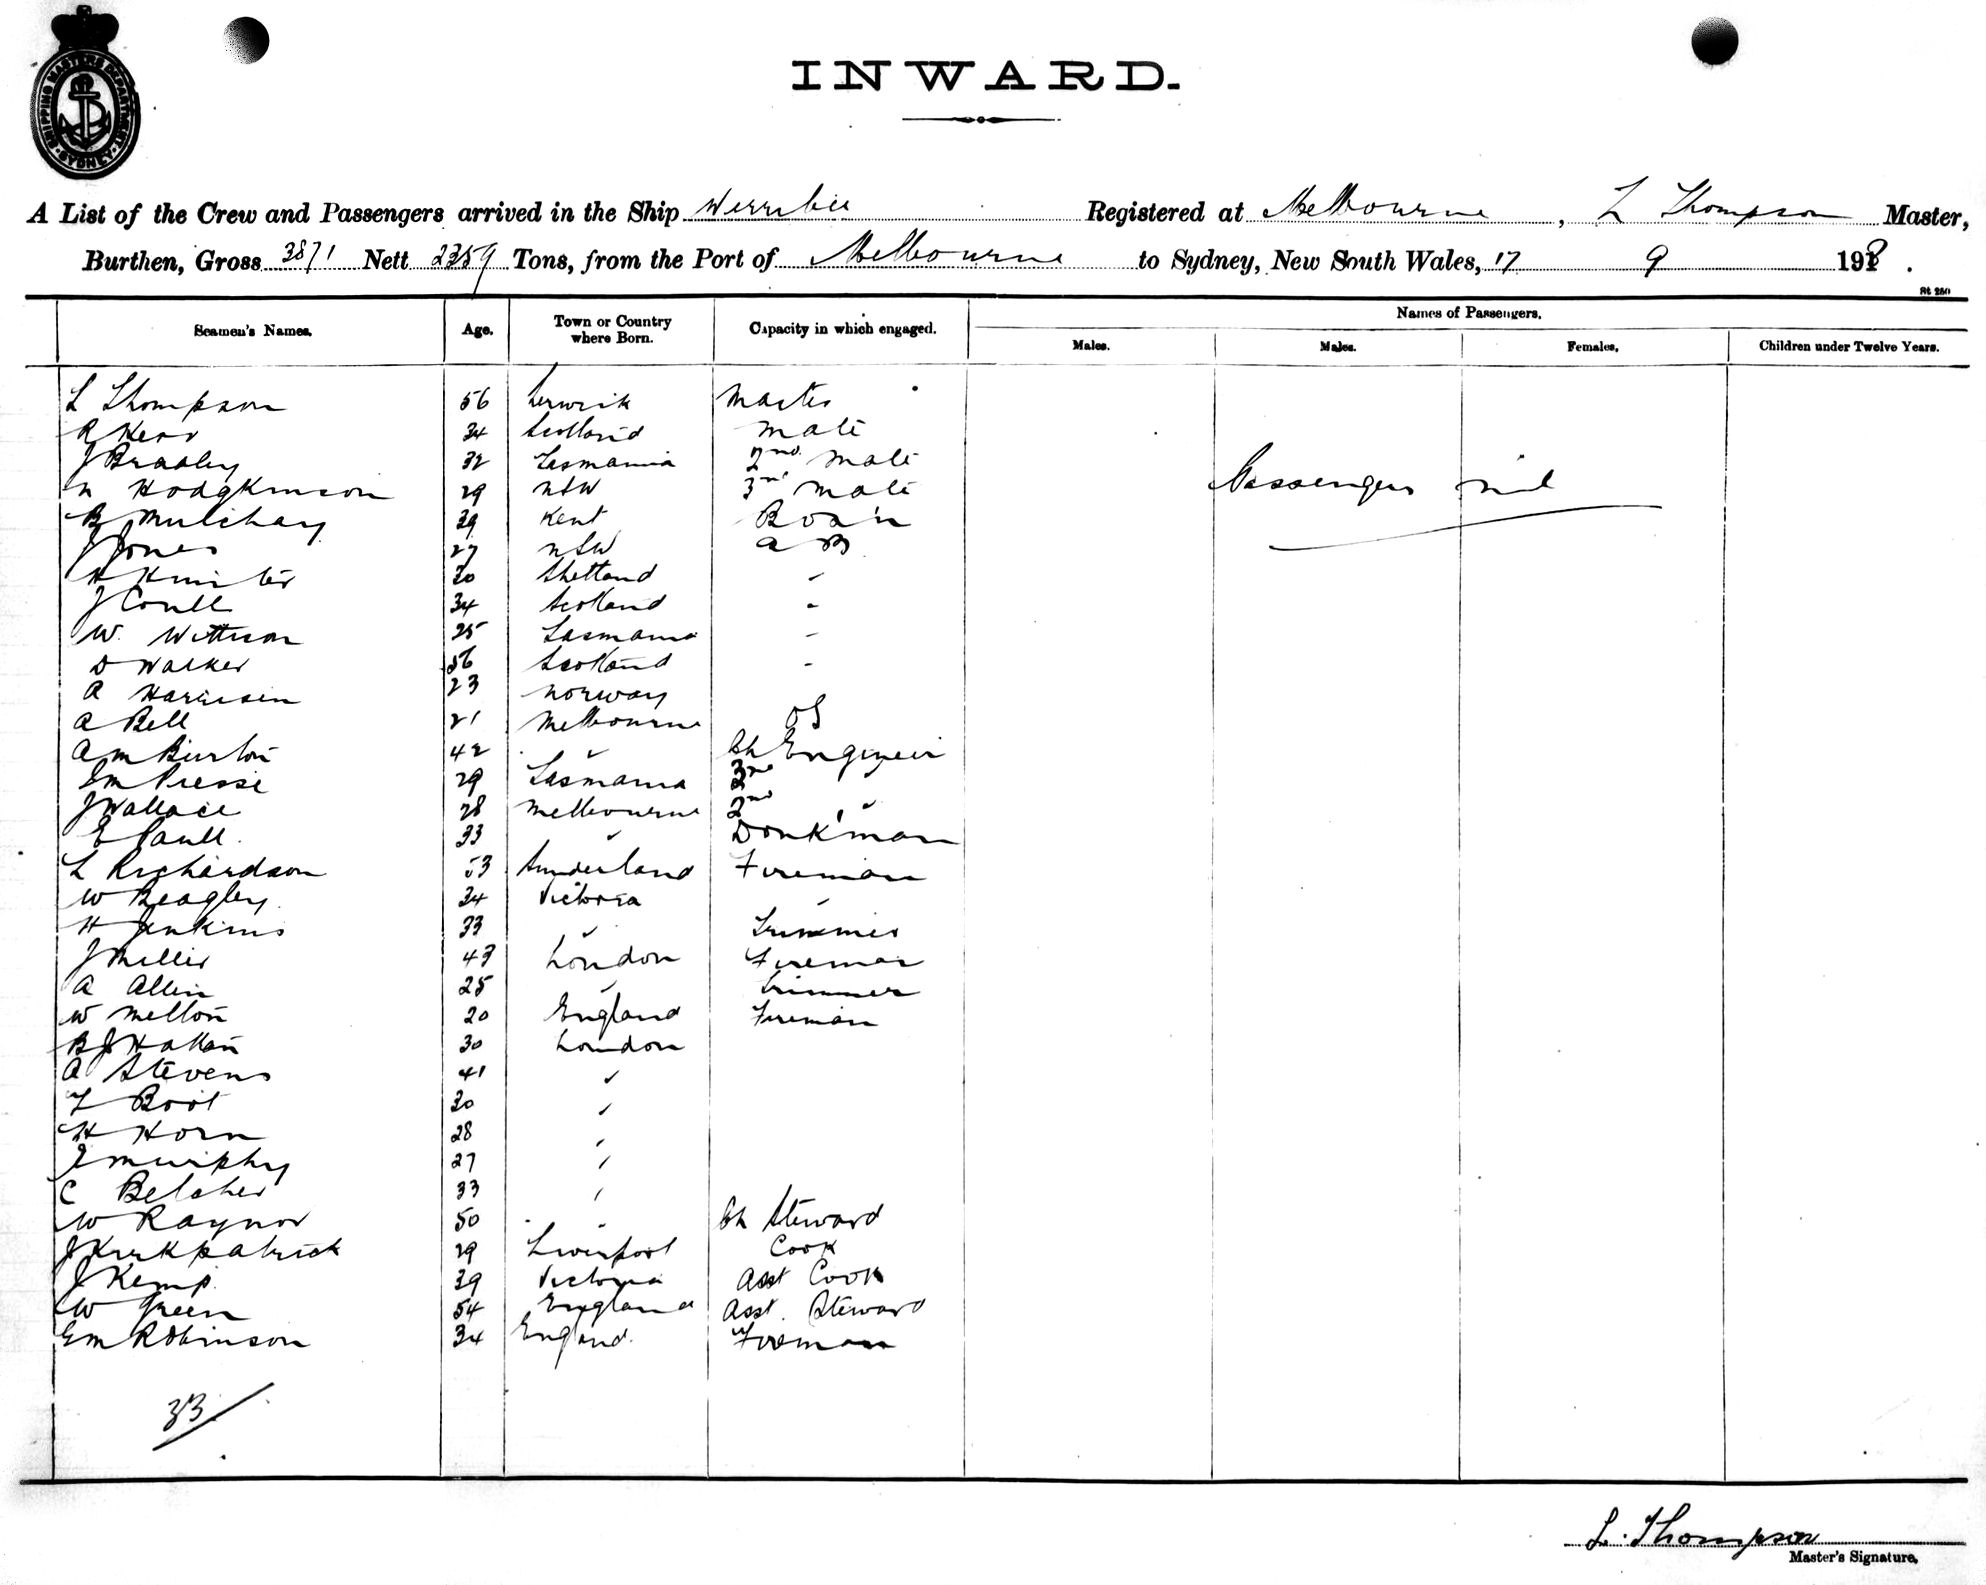 SHIPPING MASTERS DEPARTMENT SYDNEY
INWARD.
A List of the Crew and Passengers arrived in the Ship Werribee Registered at Melbourne, L Thompson Master,
Burthen, Gross 3871 Nett 2359 Tons, from the Port of Melbourne to Sydney, New South Wales, 17 9 1918.
St 250
Seamen's Names. Age. Town or Country where Born. Capacity in which engaged. Names of Passengers.
Males. Males. Females. Children under Twelve Years.
L Thompson 56 Lerwick Master
R Kerr 34 Scotland Mate
J Bradley 32 Tasmania 2nd Mate
N Hodgkinson 29 NSW 3rd Mate
Passengers nil
B Mulchay 39 Kent Bos'n
J Jones 27 NSW A B
H 30 Shetland "
J Coull 34 Scotland "
W. 25 Tasmania "
D Walker 56 Scotland "
A 23 Norway
A Bell 21 Melbourne OS
A M Burton 42 " Ch Engineer
29 Tasmania 3rd
J Wallace 28 Melbourne 2nd "
E 33 " Donk'man
L Richardson 53 Sunderland Fireman
W Beagley 34 Victoria "
H Jenkins 33 " Trimmer
J Miller 43 London Fireman
A Allen 25 " Trimmer
W Melton 20 England Fireman
B J 30 London
A Stevens 41 "
L Boot 30 "
H Horn 28 "
J Murphy 27 "
C Belcher 33 "
W Raynor 50 " Ch Steward
J Kirkpatrick 29 Liverpool Cook
J Kemp 39 Victoria Asst Cook
W Green 54 England Asst. Steward
E M Robinson 34 England. Fireman
33
L. Thompson
Master's Signature.